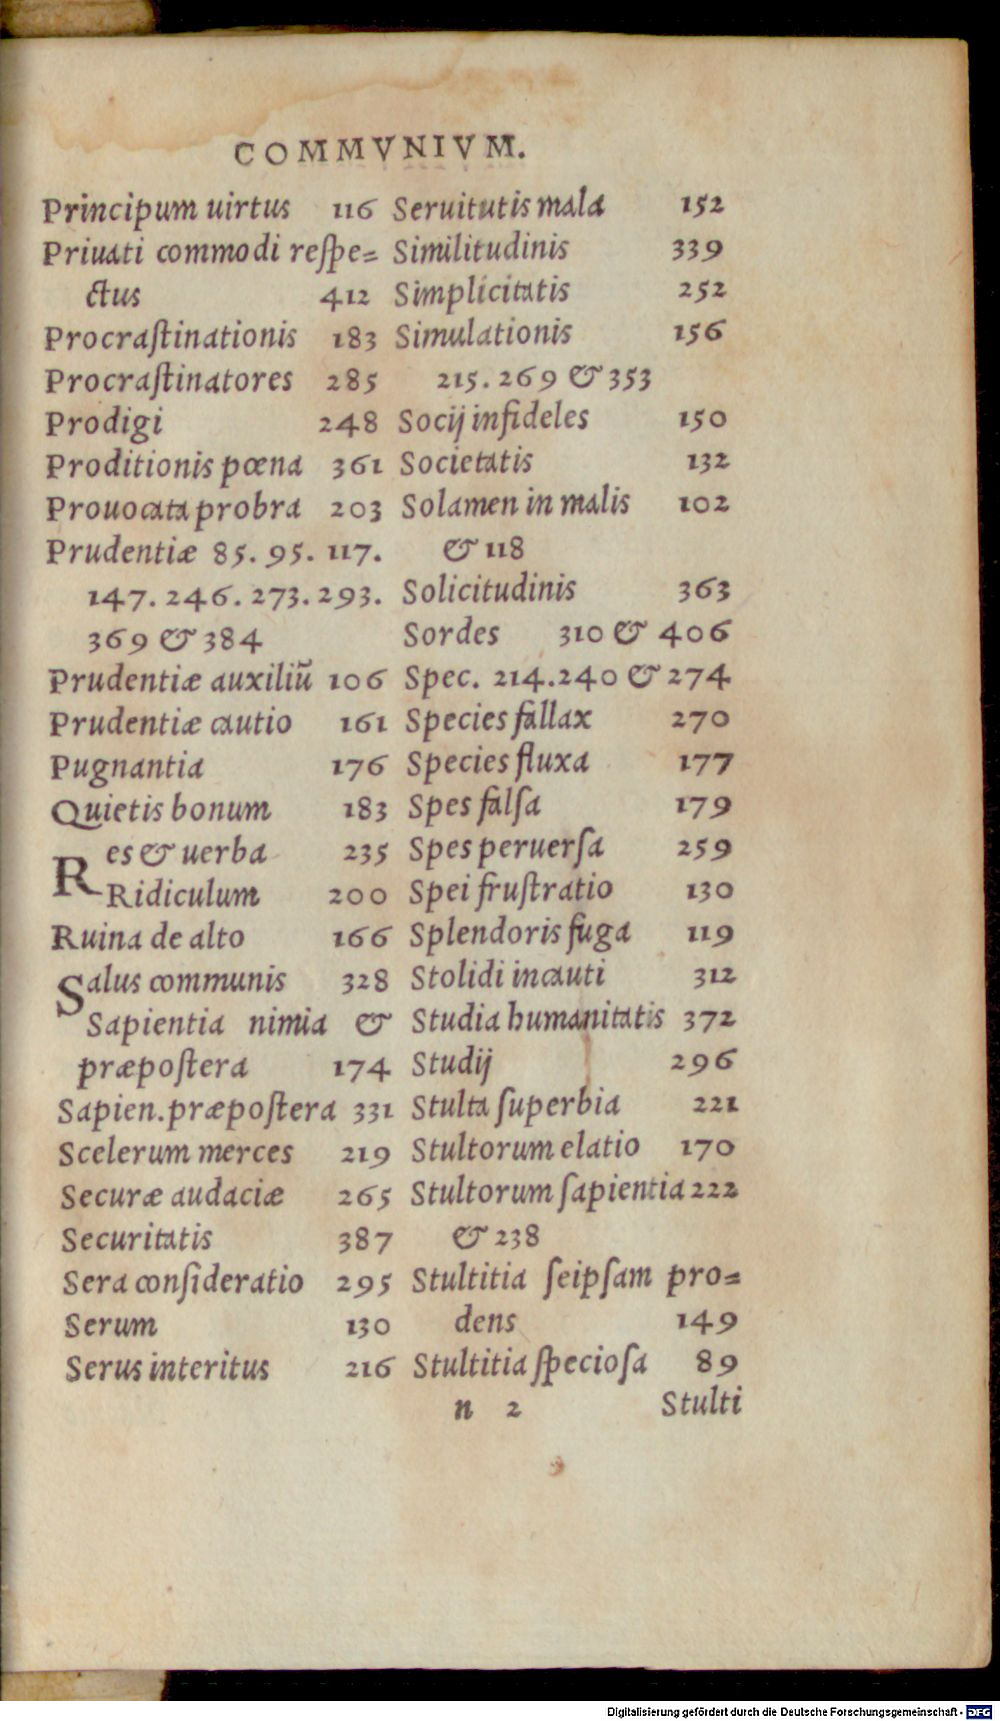 COMMVNIVM.
Principum uirtus 116
Priuati commodi reſpe=
ctus 412
Procraſtinationis 183
Procraſtinatores 285
Prodigi 248
Proditionis pœna 361
Prouocata probra 203
Prudentiæ 85. 95. 117.
147. 246. 273. 293.
369 & 384
Prudentiæ auxiliũ 106
Prudentiæ cautio 161
Pugnantia 176
Quietis bonum 183
Res & uerba 235
Ridiculum 200
Ruina de alto 166
Salus communis 328
Sapientia nimia &
præpoſtera 174
Sapien. præpoſtera 331
Scelerum merces 219
Securæ audaciæ 265
Securitatis 387
Sera conſideratio 295
Serum 130
Serus interitus 216
Seruitutis mala 152
Similitudinis 339
Simplicitatis 252
Simulationis 156
215. 269 & 353
Socij infideles 150
Societatis 132
Solamen in malis 102
& 118
Solicitudinis 363
Sordes 310 & 406
Spec. 214. 240 & 274
Species fallax 270
Species fluxa 177
Spes falſa 179
Spes peruerſa 259
Spei fruſtratio 130
Splendoris fuga 119
Stolidi incauti 312
Studia humanitatis 372
Studij 296
Stulta ſuperbia 221
Stultorum elatio 170
Stultorum ſapientia 222
& 238
Stultitia ſeipſam pro=
dens 149
Stultitia ſpecioſa 89
n 2 Stulti
Digitalisierung gefördert durch die Deutsche Forschungsgemeinschaft - DFG